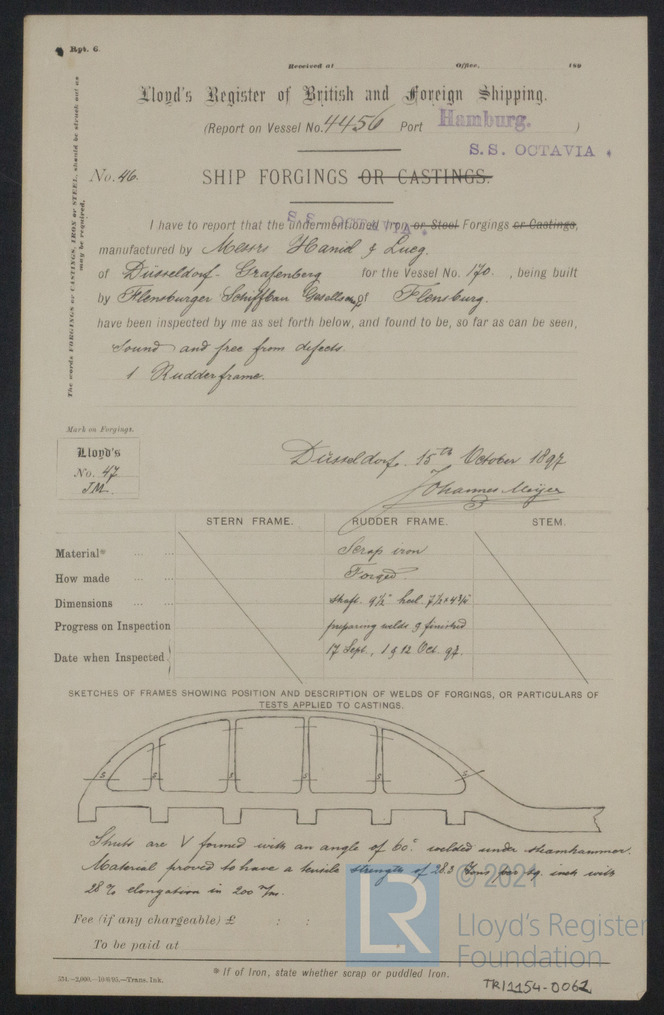 Rpt. 6.
Received at Office, 189
Lloyd's Register of British and Foreign Shipping.
(Report on Vessel No. 4456 Port Hamburg. )
S.S. OCTAVIA.
No. 46. SHIP FORGINGS OR CASTINGS.
S.S. OCTAVIA.
I have to report that the undermentioned Iron or Steel Forgings or Castings,
manufactured by Messrs Haniel & Lueg.
of Düsseldorf-Grafenberg for the Vessel No. 170. , being built
by Flensburger Schiffbau Gesellsch of Flensburg.
have been inspected by me as set forth below, and found to be, so far as can be seen,
sound and free from defects.
1 Rudderframe.
The words FORGINGS or CASTINGS, IRON or STEEL, should be struck out as
may be required.
Mark on Forgings.
Lloyd's
No. 47
J.M.
Düsseldorf. 15th October 1897
Johannes Meyer
STERN FRAME. RUDDER FRAME. STEM.
Material* Scrap iron
How made Forged.
Dimensions shaft. 9½" heel. 7½ × 4¾"
Progress on Inspection preparing welds & finished
Date when Inspected 17 Sept., 1 & 12 Oct. 97.
SKETCHES OF FRAMES SHOWING POSITION AND DESCRIPTION OF WELDS OF FORGINGS, OR PARTICULARS OF
TESTS APPLIED TO CASTINGS.
s s s s s s
Shuts are V formed with an angle of 60° welded under steamhammer.
Material proved to have a tensile strength of 28.3 Tons per sq. inch with
28 % elongation in 200 m/m.
Fee (if any chargeable) £ : :
To be paid at
* If of Iron, state whether scrap or puddled Iron.
Trans. Ink.
TRI1154-0062
LR
© 2021
Lloyd's Register
Foundation